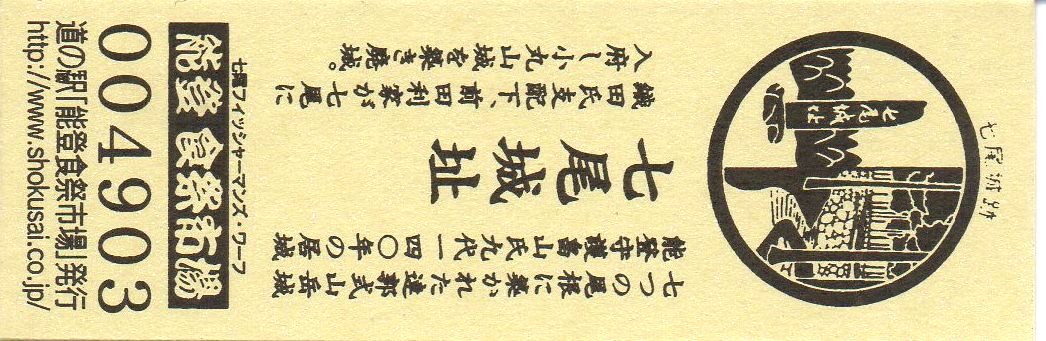 七尾城跡
七尾城址
七つの尾根に築かれた連郭式山岳城
能登守護畠山氏九代一四〇年の居城
七尾城址
織田氏支配下、前田利家が七尾に
入府し小丸山城を築き廃城。
七尾フィッシャーマンズ・ワーフ
能登食祭市場
004903
道の駅「能登食祭市場」発行
http://www.shokusai.co.jp/